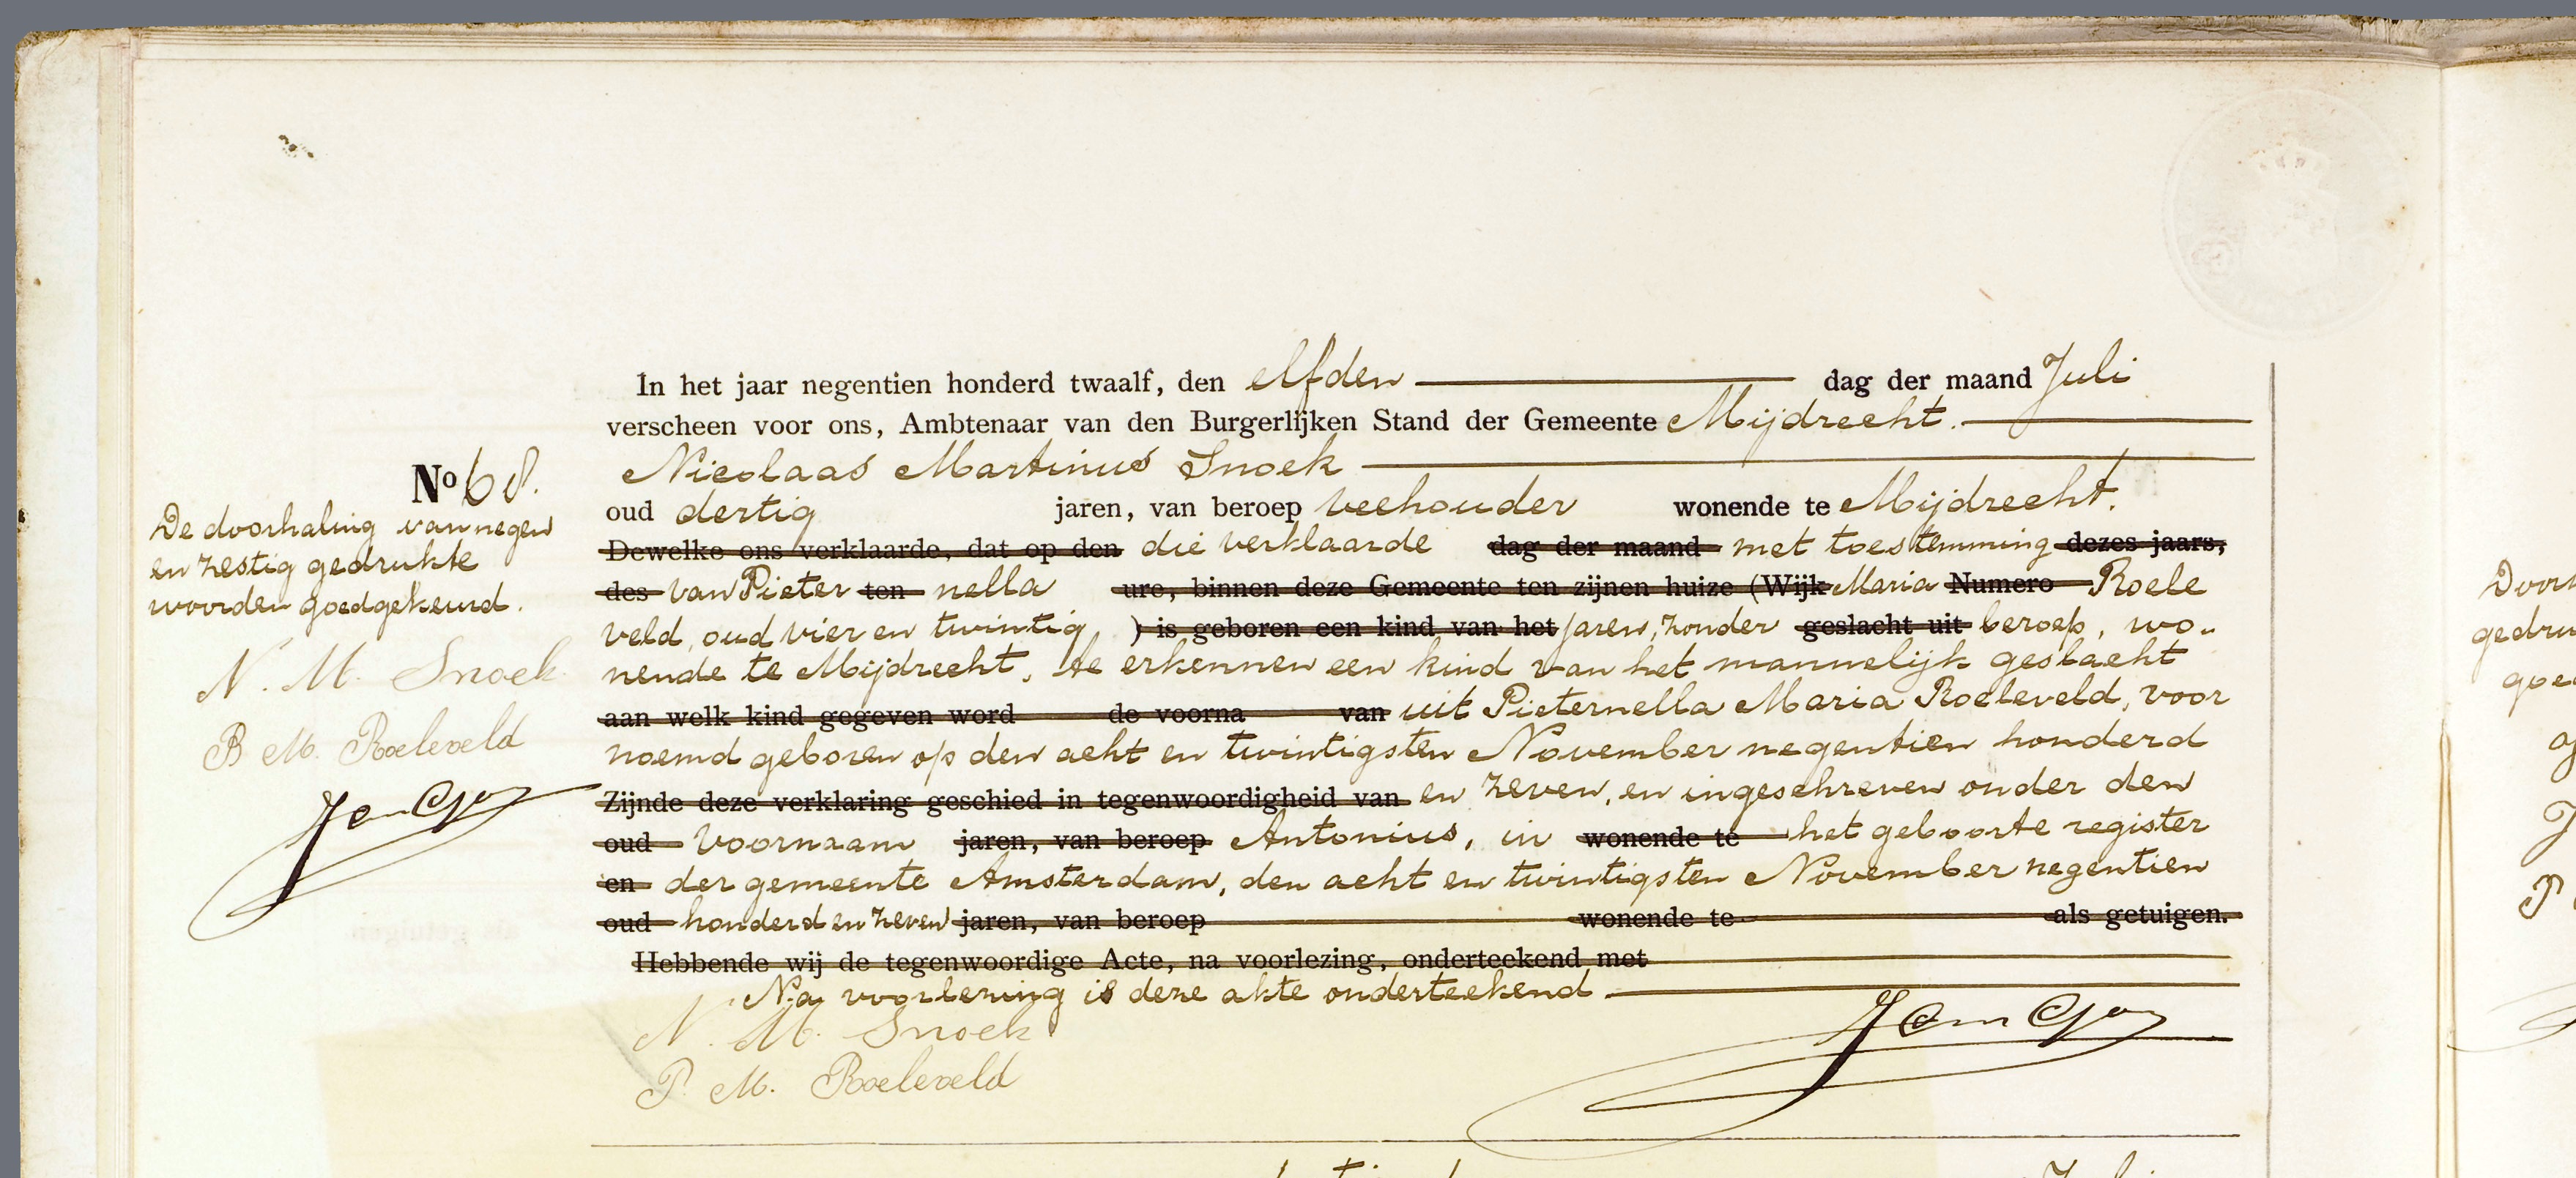 In het jaar negentien honderd twaalf, den elfden dag der maand Juli
verscheen voor ons, Ambtenaar van den Burgerlijken Stand der Gemeente Mijdrecht.
Nicolaas Martinus Snoek
No 68.
oud dertig jaren, van beroep veehouder wonende te Mijdrecht.
De doorhaling van negen
en zestig gedrukte
woorden goedgekeurd.
N. M. Snoek
P. M. Roeleveld
Dewelke ons verklaarde, dat op den die verklaarde dag der maand met toestemming dezes jaars,
des van Pieter ten nella ure, binnen deze Gemeente ten zijnen huize (Wijk Maria Numero Roele
veld, oud vier en twintig ) is geboren een kind van het jaren, zonder geslacht uit beroep, wo-
nende te Mijdrecht, te erkennen een kind van het mannelijk geslacht
aan welk kind gegeven word de voorna van uit Pieternella Maria Roeleveld, voor
noemd geboren op den acht en twintigsten November negentien honderd
Zijnde deze verklaring geschied in tegenwoordigheid van en zeven, en ingeschreven onder den
oud voornaam jaren, van beroep Antonius, in wonende te het geboorte register
en der gemeente Amsterdam, den acht en twintigsten November negentien
oud honderd en zeven jaren, van beroep wonende te als getuigen.
Hebbende wij de tegenwoordige Acte, na voorlezing, onderteekend met
Na voorlezing is deze akte onderteekend.
N. M. Snoek
P. M. Roeleveld